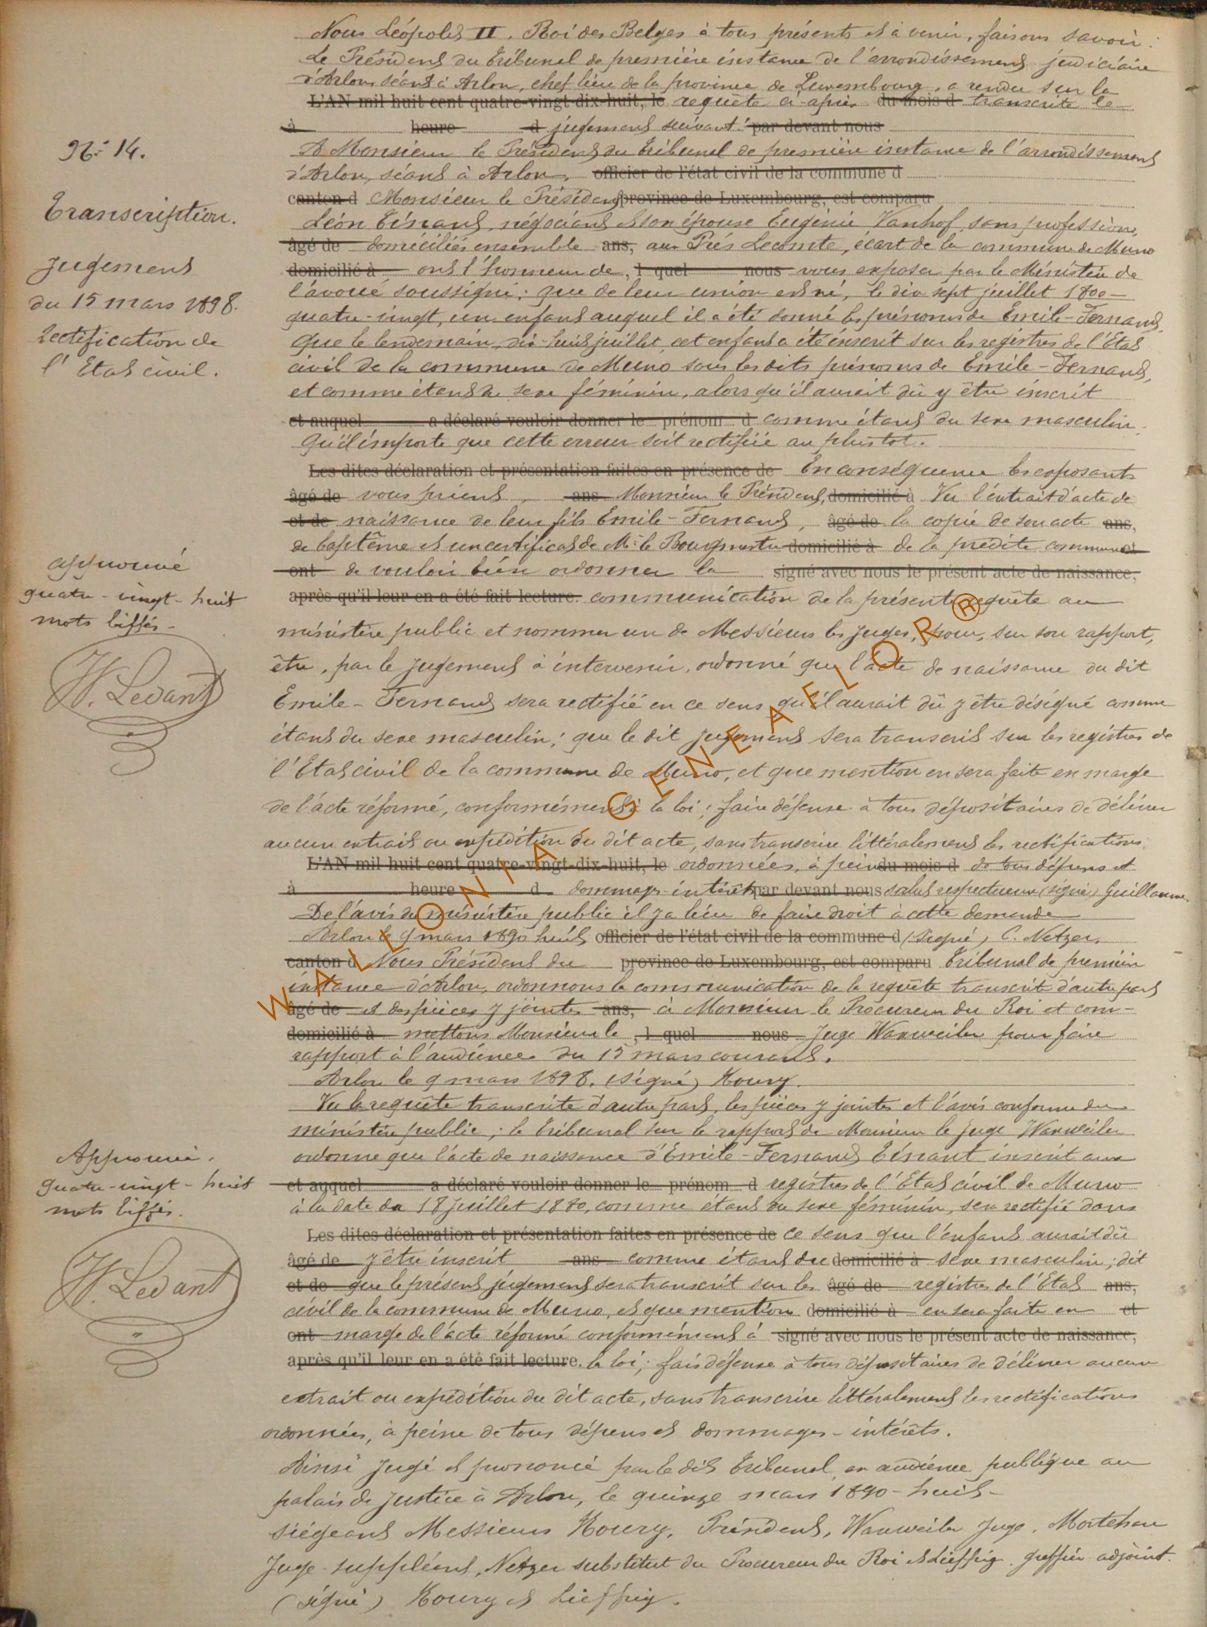 Nous Léopold II, Roi des Belges à tous présents et à venir, faisons savoir :
Le Président du tribunal de première instance de l'arrondissement judiciaire
d'Arlon séant à Arlon, chef lieu de la province de Luxembourg, a rendu sur la
L'AN mil huit cent quatre-vingt-dix-huit, le requête ci-après du mois d transcrite le
à heure d jugement suivant : par devant nous
N° 14.
A Monsieur le Président du tribunal de première instance de l'arrondissement
d'Arlon, séant à Arlon, officier de l'état civil de la commune d
canton d Monsieur le Président province de Luxembourg, est comparu
Transcription.
Léon Tinant, négociant et son épouse Eugénie Vanhof, sans profession,
âgé de domiciliés ensemble ans, aux Prés Lecomte, écart de la commune de Muno
Jugement
domicilié à ont l'honneur de , l quel nous vous exposer par le Ministère de
l'avoué soussigné : que de leur union est né, le dix sept juillet 1800-
du 15 mars 1898.
quatre-vingt, un enfant auquel il a été donné les prénoms de Emile-Fernand,
rectification de
Que le lendemain, dix-huit juillet, cet enfant a été inscrit sur les registres de l'Etat
l'Etat civil.
civil de la commune de Muno sous les dits prénoms de Emile-Fernand,
et comme étant du sexe féminin, alors qu'il aurait dû y être inscrit
et auquel a déclaré vouloir donner le prénom d comme étant du sexe masculin.
Qu'il importe que cette erreur soit rectifiée au plus tôt.
Les dites déclaration et présentation faites en présence de En conséquence les exposants
âgé de vous prient, ans Monsieur le Président, domicilié à Vu l'extrait d'acte de
et de naissance de leur fils Emile-Fernand, âgé de la copie de son acte ans,
de baptême et un certificat de Mr le Bourgmestre domicilié à de la prédite commune et
approuvé
ont de vouloir bien ordonner la signé avec nous le présent acte de naissance,
quatre-vingt-huit
après qu'il leur en a été fait lecture. communication de la présente requête au
mots biffés.
ministère public et nommer un de Messieurs les Juges, pour, sur son rapport,
H. Ledant
être, par le jugement à intervenir, ordonné que l'acte de naissance du dit
Emile-Fernand sera rectifié en ce sens qu'il aurait dû y être désigné comme
étant du sexe masculin ; que le dit jugement sera transcrit sur les registres de
l'Etat civil de la commune de Muno, et que mention en sera faite en marge
de l'acte réformé, conformément à la loi ; faire défense à tous dépositaires de délivrer
aucun extrait ou expédition du dit acte, sans transcrire littéralement les rectifications
L'AN mil huit cent quatre-vingt-dix-huit, le ordonnées, à peine du mois d de tous dépens et
à heure d dommages-intérêts par devant nous salut respectueux (signé) Guillaume.
De l'avis du ministère public il y a lieu de faire droit à cette demande
Arlon le 9 mars 1890 huit officier de l'état civil de la commune d (signé) C. Netzer.
canton d Nous Président du province de Luxembourg, est comparu tribunal de première
instance d'Arlon, ordonnons la communication de la requête transcrite d'autre part
âgé de et des pièces y jointes ans, à Monsieur le Procureur du Roi et com-
domicilié à mettons Monsieur le , l quel nous Juge Wanweiler pour faire
rapport à l'audience du 15 mars courant.
Arlon le 9 mars 1898. (signé) Koury.
Vu la requête transcrite d'autre part, les pièces y jointes et l'avis conforme du
ministère public ; le tribunal sur le rapport de Monsieur le juge Wanweiler
Approuvé.
ordonne que l'acte de naissance d'Emile-Fernand Tinant inscrit aux
quatre-vingt-huit
et auquel a déclaré vouloir donner le prénom d registres de l'Etat civil de Muno
mots biffés.
à la date du 18 juillet 1880, comme étant du sexe féminin, sera rectifié dans
Les dites déclaration et présentation faites en présence de ce sens que l'enfant aurait dû
H. Ledant
âgé de y être inscrit ans comme étant du domicilié à sexe masculin ; dit
et de que le présent jugement sera transcrit sur les âgé de registres de l'Etat ans,
civil de la commune de Muno, et que mention domicilié à en sera faite en et
ont marge de l'acte réformé conformément à signé avec nous le présent acte de naissance,
après qu'il leur en a été fait lecture. la loi ; fait défense à tous dépositaires de délivrer aucun
extrait ou expédition du dit acte, sans transcrire littéralement les rectifications
ordonnées, à peine de tous dépens et dommages-intérêts.
Ainsi jugé et prononcé par le dit tribunal en audience publique au
palais de justice à Arlon, le quinze mars 1890-huit-
siégeant Messieurs Koury, Président, Wanweiler Juge, Mortehan
Juge-suppléant, Netzer substitut du Procureur du Roi et Lieffrig greffier adjoint.
(signé) Koury et Lieffrig.
WALLONIA-GENEAFLOR®